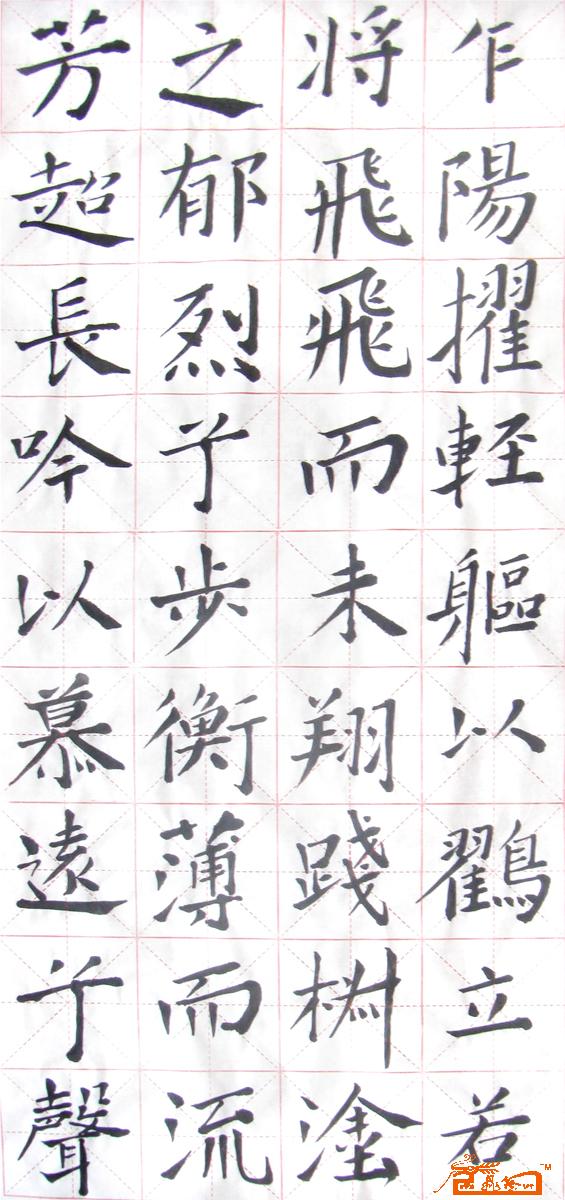 乍陽擢輕軀以鸐立若
将飛飛而未翔踐椒塗
之郁烈兮步衡薄而流
芳超長吟以慕遠兮聲